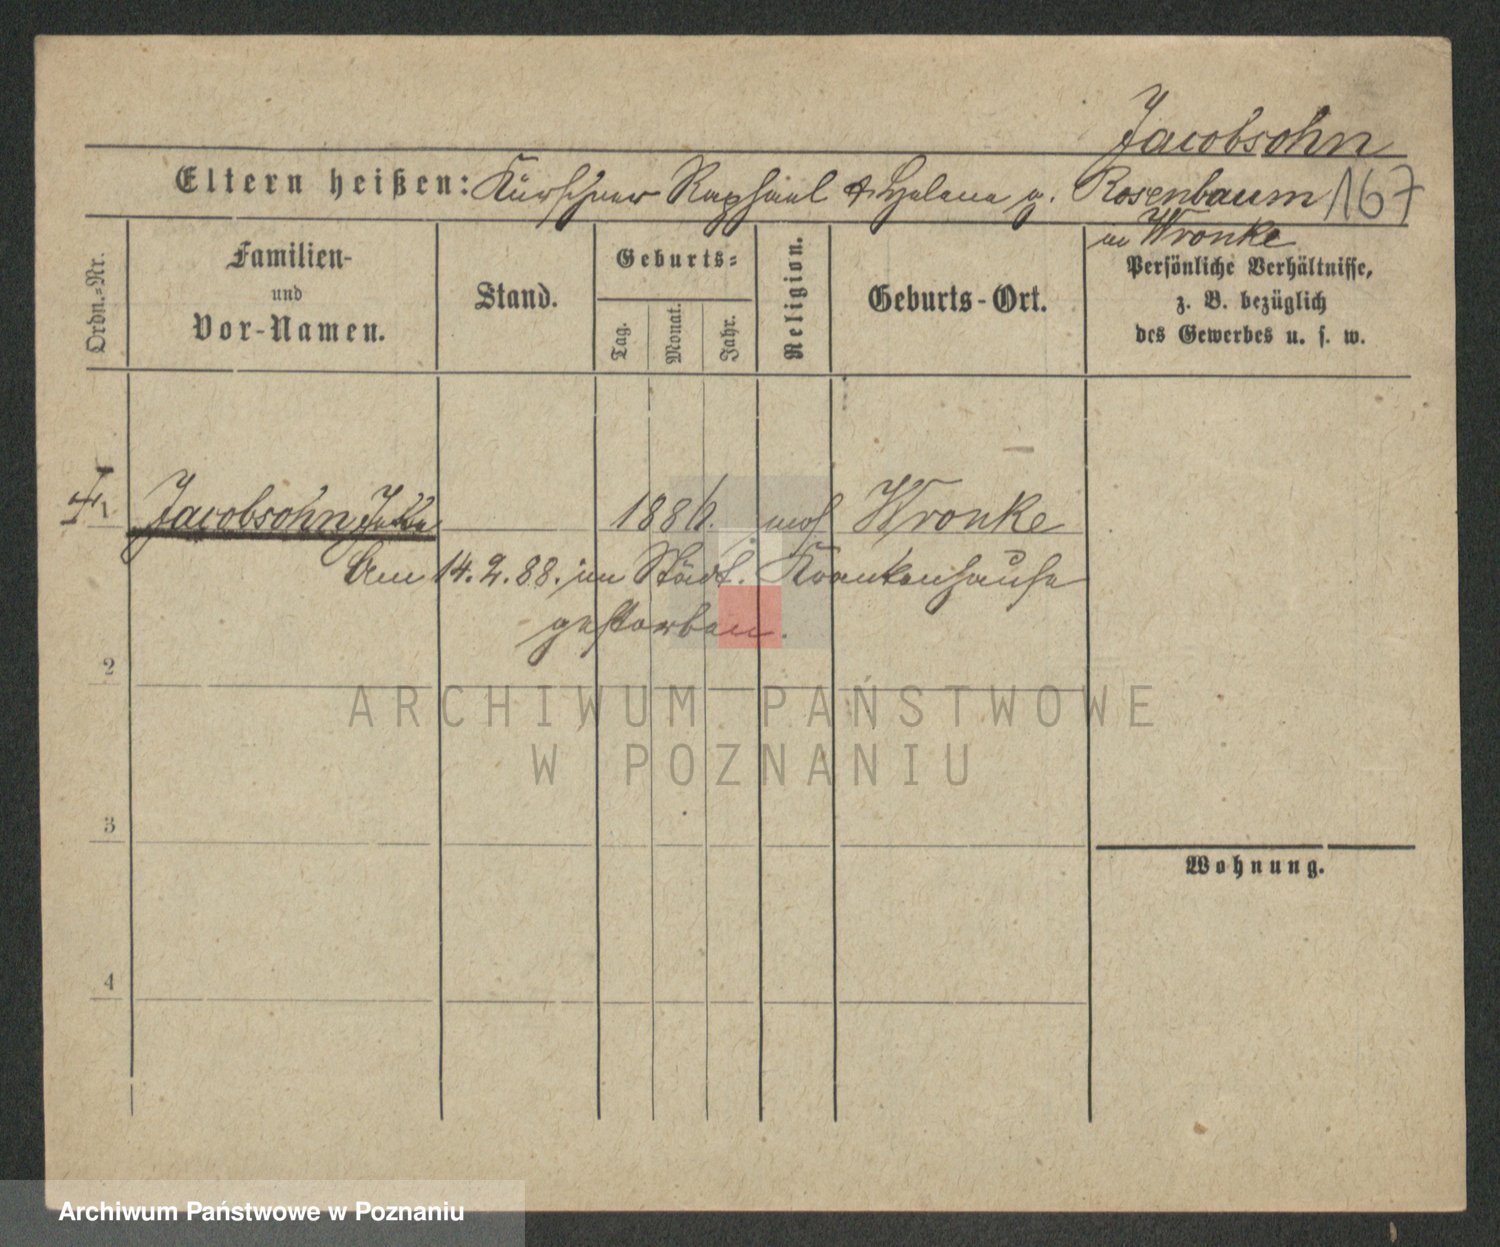 Jacobsohn
Eltern heißen: Kürschner Raphael & Helene g. Rosenbaum 167
in Wronke
Ordn.-Nr.
Familien-
und
Vor-Namen.
Stand.
Geburts-
Tag.
Monat.
Jahr.
Religion.
Geburts-Ort.
Persönliche Verhältnisse,
z. B. bezüglich
des Gewerbes u. s. w.
1 Jacobsohn, 1886. mos Wronke
Am 14.2.88. im Städt. Krankenhause
gestorben.
2
3
4
Wohnung.
ARCHIWUM PAŃSTWOWE
W POZNANIU
Archiwum Państwowe w Poznaniu